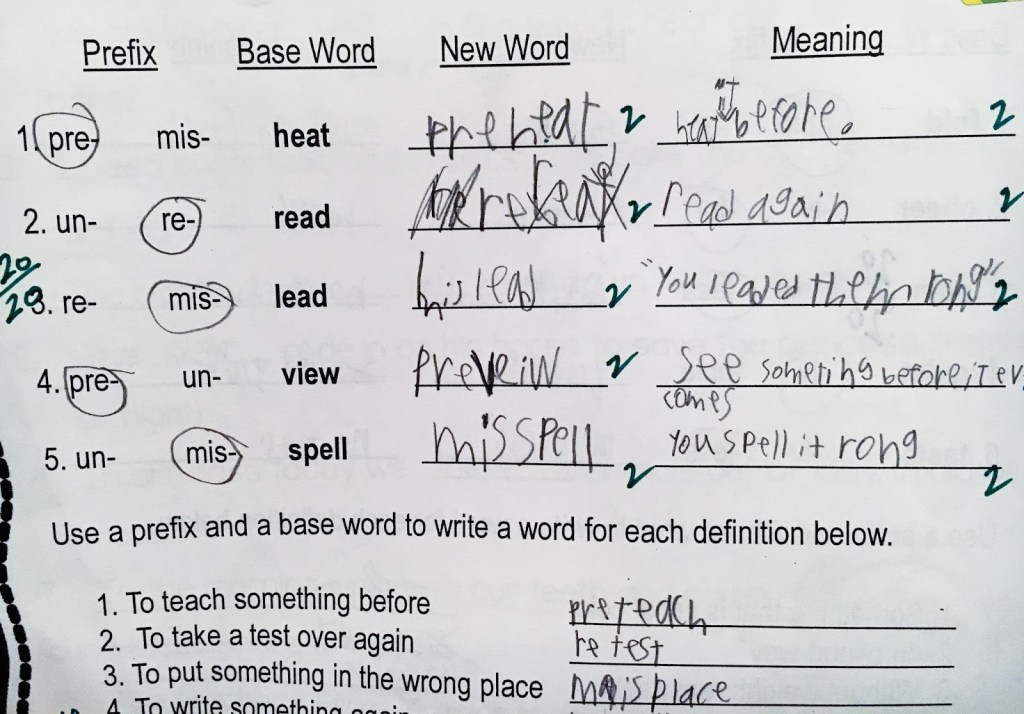 Prefix Base Word New Word Meaning
1. pre- mis- heat preheat 2 heat it before. 2
2. un- re- read 2 read again 2
20/20
3. re- mis- lead mislead 2 "You leaded them rong" 2
4. pre- un- view preveiw 2 see someting before, it ev
comes
5. un- mis- spell misspell 2 You spell it rong 2
Use a prefix and a base word to write a word for each definition below.
1. To teach something before preteach
2. To take a test over again re test
3. To put something in the wrong place misplace
4. To write something again